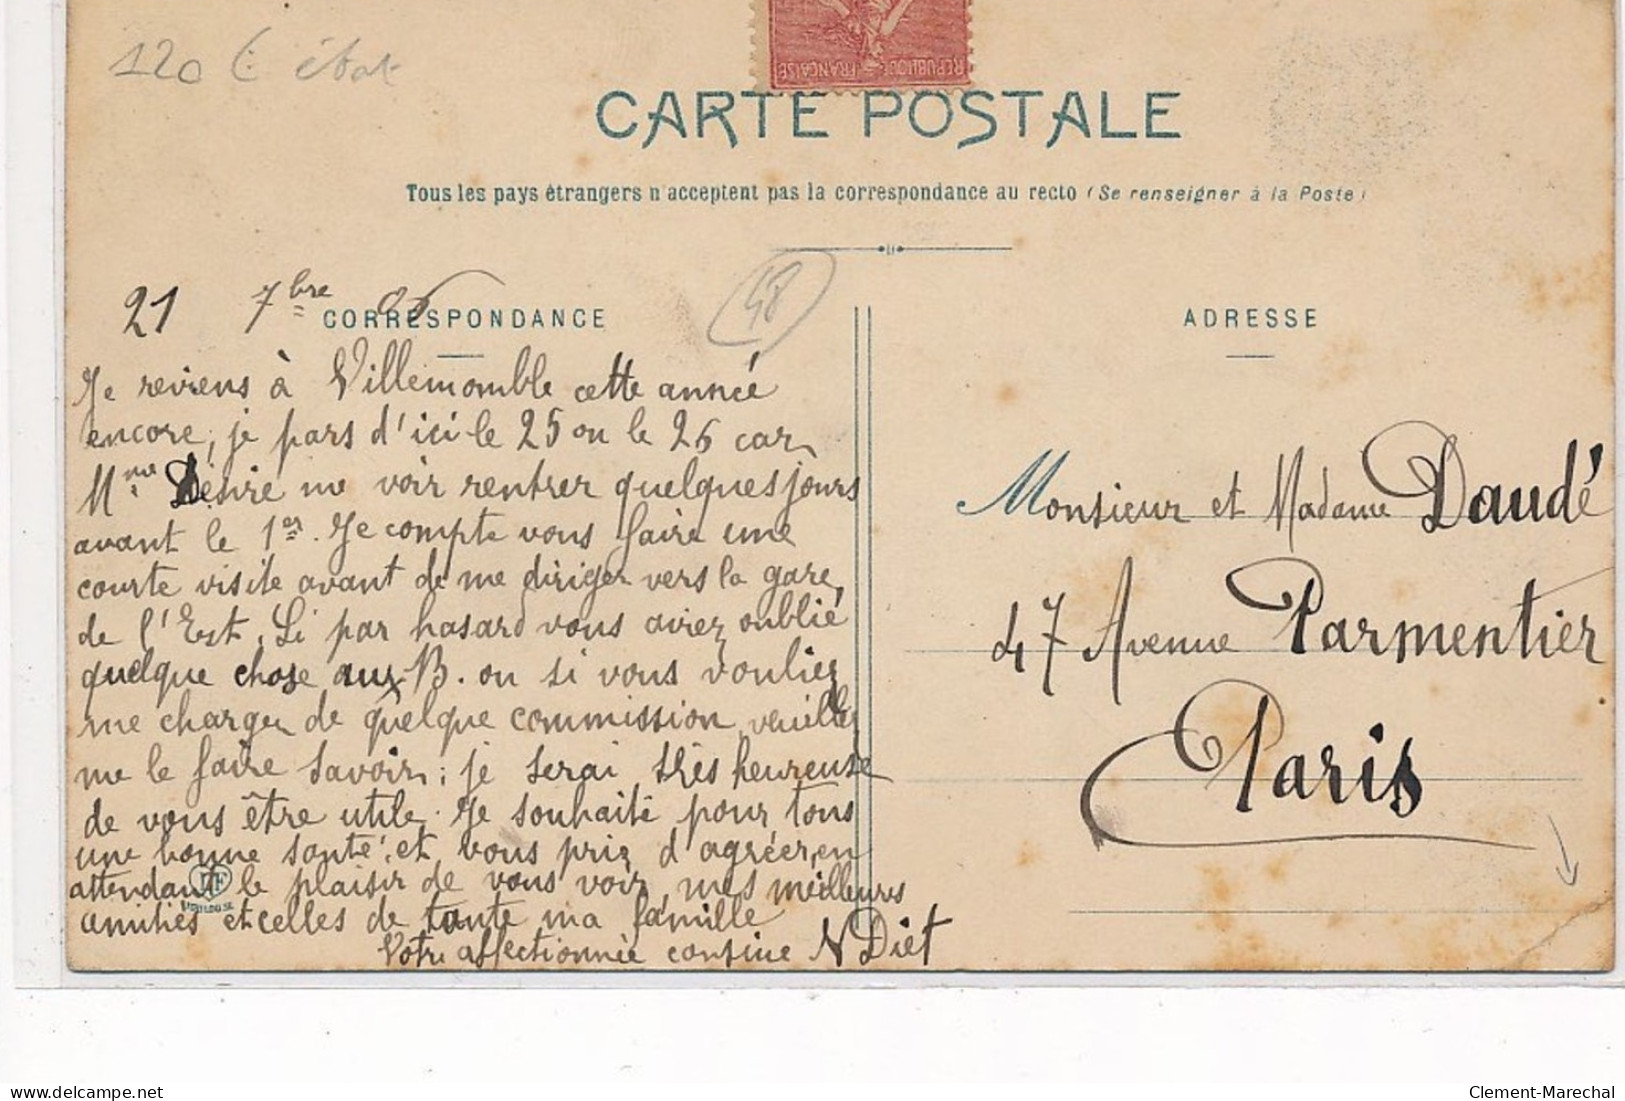 120 € état
RÉPUBLIQUE FRANÇAISE
CARTE POSTALE
Tous les pays étrangers n'acceptent pas la correspondance au recto (Se renseigner à la Poste)
48
21 7bre 06
CORRESPONDANCE
Je reviens à Villemomble cette année
encore, je pars d'ici le 25 ou le 26 car
Mme Désire me voir rentrer quelques jours
avant le 1er. Je compte vous faire une
courte visite avant de me diriger vers la gare
de l'Est. Si par hasard vous aviez oublié
quelque chose aux B. ou si vous vouliez
me charger de quelque commission veuillez
me le faire savoir; je serai très heureuse
de vous être utile. Je souhaite pour tous
une bonne santé, et vous prie d'agréer, en
attendant le plaisir de vous voir mes meilleures
amitiés et celles de toute ma famille
Votre affectionnée cousine N Diet
ADRESSE
Monsieur et Madame Daudé
47 Avenue Parmentier
Paris
TOULOUSE
delcampe.net
Clement-Marechal